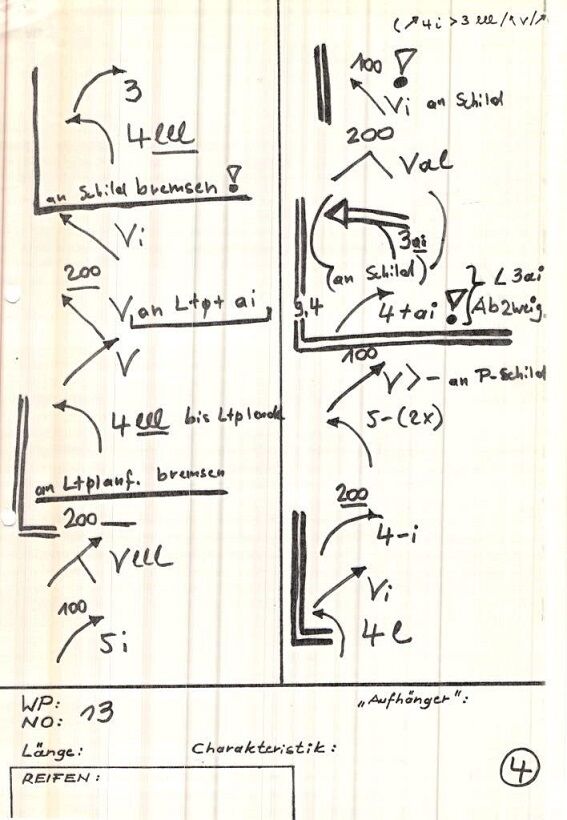 ( ↗ 4i > 3 lll / ↖ V / ↗
3
4 lll
an Schild bremsen !
Vi
200
V, an Ltpt ai
V
4 lll bis Ltplende
an Ltplanf. bremsen
200 —
Vlll
100
5i
100 !
Vi an Schild
200
Val
3ai
(an Schild)
9,4
4+ai ! } L 3ai
Abzweig.
100
V > - an P-Schild
5-(2x)
200
4-i
Vi
4l
WP:
NO: 13
"Aufhänger":
Länge:
Charakteristik:
REIFEN:
4